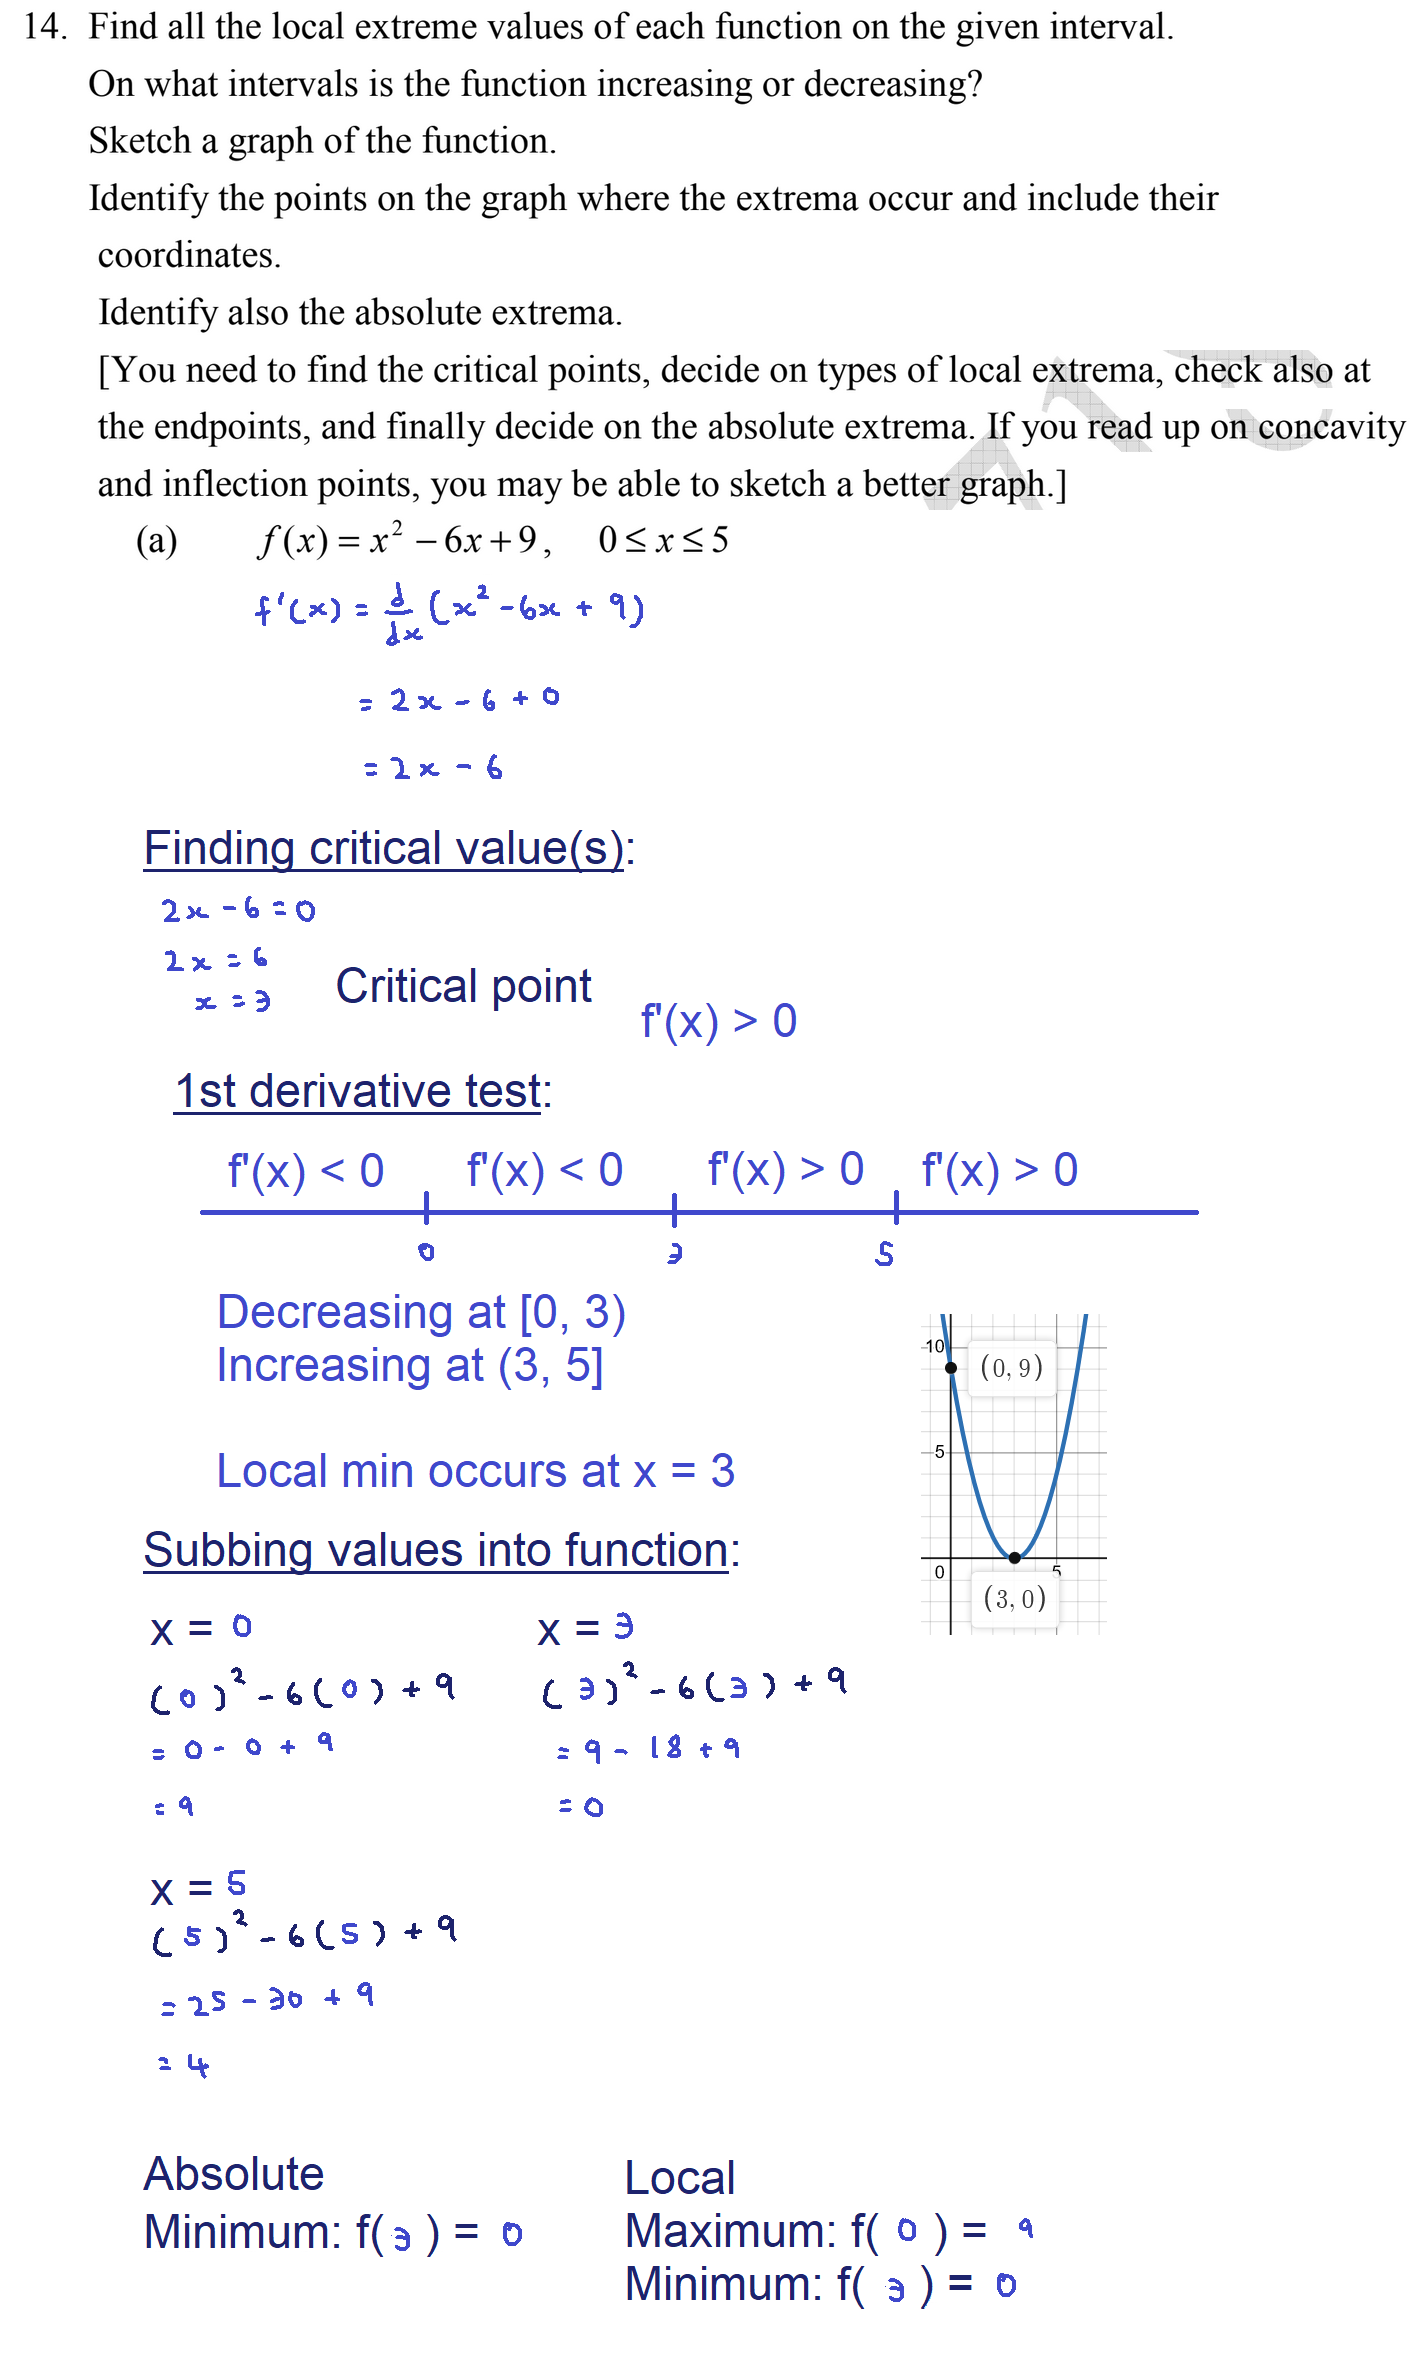 14. Find all the local extreme values of each function on the given interval.
On what intervals is the function increasing or decreasing?
Sketch a graph of the function.
Identify the points on the graph where the extrema occur and include their
coordinates.
Identify also the absolute extrema.
[You need to find the critical points, decide on types of local extrema, check also at
the endpoints, and finally decide on the absolute extrema. If you read up on concavity
and inflection points, you may be able to sketch a better graph.]
(a) f(x) = x² − 6x + 9, 0 ≤ x ≤ 5
f'(x) = d/dx (x² - 6x + 9)
= 2x - 6 + 0
= 2x - 6
Finding critical value(s):
2x - 6 = 0
2x = 6
x = 3 Critical point
f'(x) > 0
1st derivative test:
f'(x) < 0 f'(x) < 0 f'(x) > 0 f'(x) > 0
0 3 5
Decreasing at [0, 3)
Increasing at (3, 5]
10 (0, 9)
5
0 5
(3, 0)
Local min occurs at x = 3
Subbing values into function:
x = 0 x = 3
(0)² - 6(0) + 9 (3)² - 6(3) + 9
= 0 - 0 + 9 = 9 - 18 + 9
= 9 = 0
x = 5
(5)² - 6(5) + 9
= 25 - 30 + 9
= 4
Absolute Local
Minimum: f(3) = 0 Maximum: f(0) = 9
Minimum: f(3) = 0